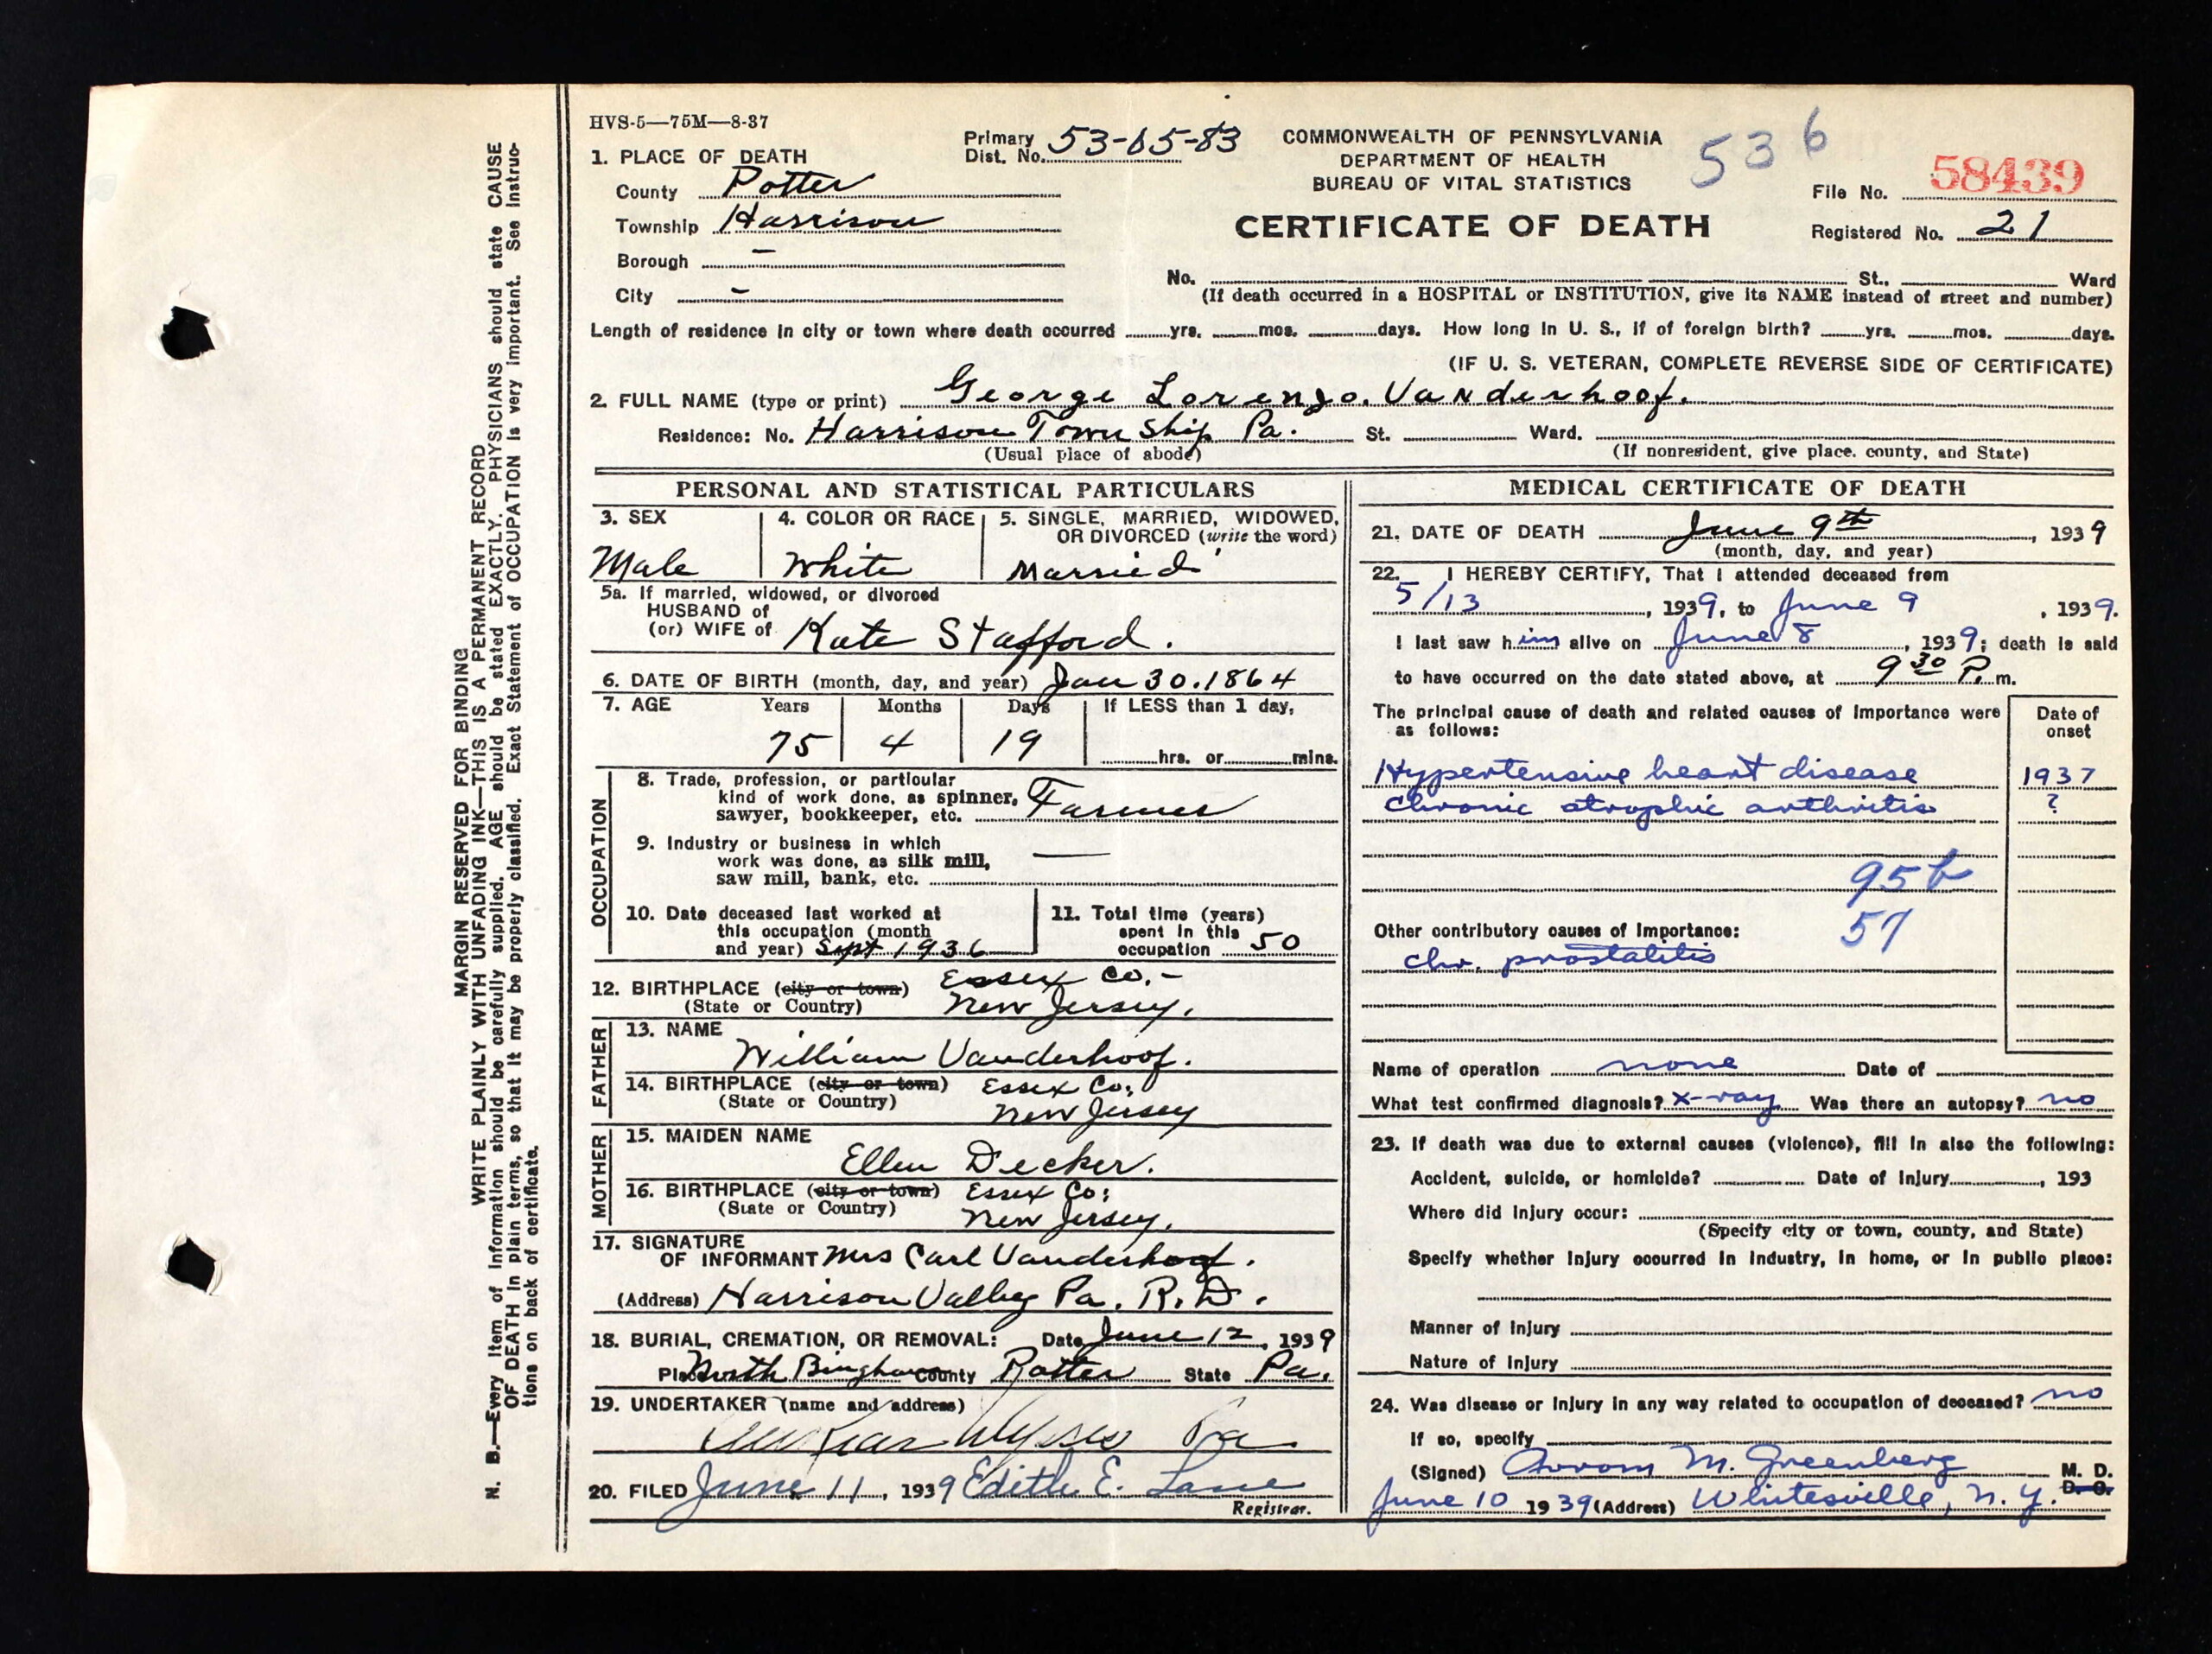 HVS-5—75M—8-37
Primary Dist. No. 53-65-83
COMMONWEALTH OF PENNSYLVANIA
DEPARTMENT OF HEALTH
BUREAU OF VITAL STATISTICS
536
File No. 58439
CERTIFICATE OF DEATH
Registered No. 21
1. PLACE OF DEATH
County Potter
Township Harrison
Borough -
City -
No. St., Ward
(If death occurred in a HOSPITAL or INSTITUTION, give its NAME instead of street and number)
Length of residence in city or town where death occurred yrs. mos. days. How long in U. S., if of foreign birth? yrs. mos. days.
(IF U. S. VETERAN, COMPLETE REVERSE SIDE OF CERTIFICATE)
2. FULL NAME (type or print) George Lorenzo. Vanderhoof.
Residence: No. Harrison Town Ship Pa. St. Ward.
(Usual place of abode) (If nonresident, give place. county, and State)
PERSONAL AND STATISTICAL PARTICULARS
3. SEX
Male
4. COLOR OR RACE
White
5. SINGLE, MARRIED, WIDOWED,
OR DIVORCED (write the word)
Married
5a. If married, widowed, or divorced
HUSBAND of
(or) WIFE of Kate Stafford.
6. DATE OF BIRTH (month, day, and year) Jan 30. 1864
7. AGE Years Months Days If LESS than 1 day,
75 4 19 hrs. or mins.
OCCUPATION
8. Trade, profession, or particular
kind of work done, as spinner,
sawyer, bookkeeper, etc. Farmer
9. Industry or business in which
work was done, as silk mill,
saw mill, bank, etc. —
10. Date deceased last worked at
this occupation (month
and year) Sept 1936
11. Total time (years)
spent in this
occupation 50
12. BIRTHPLACE (city or town) Essex Co.-
(State or Country) New Jersey.
FATHER
13. NAME
William Vanderhoof.
14. BIRTHPLACE (city or town) Essex Co;
(State or Country) New Jersey
MOTHER
15. MAIDEN NAME
Ellen Decker.
16. BIRTHPLACE (city or town) Essex Co;
(State or Country) New Jersey.
17. SIGNATURE
OF INFORMANT Mrs Carl Vanderhoof.
(Address) Harrison Valley Pa. R.D.
18. BURIAL, CREMATION, OR REMOVAL: Date June 12, 1939
Place North Bingham County Potter State Pa.
19. UNDERTAKER (name and address)
Ulysses Pa
20. FILED June 11, 1939 Edith E. Lane
Registrar.
MEDICAL CERTIFICATE OF DEATH
21. DATE OF DEATH June 9th, 1939
(month, day, and year)
22. I HEREBY CERTIFY, That I attended deceased from
5/13, 1939, to June 9, 1939.
I last saw him alive on June 8, 1939; death is said
to have occurred on the date stated above, at 9 30 P. m.
The principal cause of death and related causes of importance were
as follows:
Date of
onset
Hypertensive heart disease 1937
Chronic atrophic arthritis ?
95b
57
Other contributory causes of importance:
chr. prostatitis
Name of operation none Date of
What test confirmed diagnosis? x-ray Was there an autopsy? no
23. If death was due to external causes (violence), fill in also the following:
Accident, suicide, or homicide? Date of injury , 193
Where did injury occur:
(Specify city or town, county, and State)
Specify whether injury occurred in industry, in home, or in public place:
Manner of injury
Nature of injury
24. Was disease or injury in any way related to occupation of deceased? no
If so, specify
(Signed) Avrom M. Greenberg M. D.
D. O.
June 10 1939 (Address) Whitesville, N. Y.
MARGIN RESERVED FOR BINDING
WRITE PLAINLY WITH UNFADING INK—THIS IS A PERMANENT RECORD
N. B.—Every item of information should be carefully supplied. AGE should be stated EXACTLY. PHYSICIANS should state CAUSE
OF DEATH in plain terms, so that it may be properly classified. Exact Statement of OCCUPATION is very important. See instruc-
tions on back of certificate.